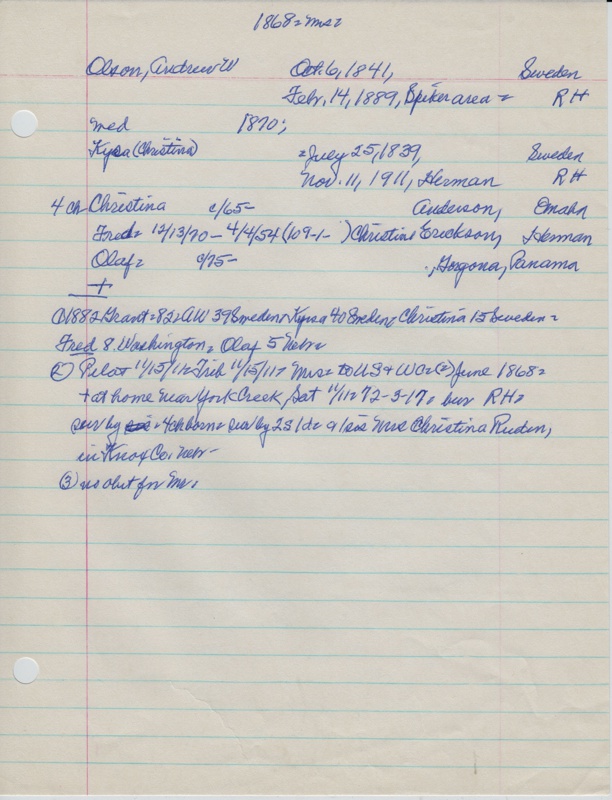 1868=Mrs=
Olson, Andrew W Oct. 6, 1841, Sweden
Febr. 14, 1889, Spiker area = RH
med 1870;
Kyrsa (Christina) =July 25, 1839, Sweden
Nov. 11, 1911, Herman RH
4 ch Christina c/65- Anderson, Omaha
Fred= 12/13/70 - 4/4/54 (109-1- ) Christine Erickson, Herman
Olaf= c/75- , Gorgona, Panama
+
① 1882 Grant=82=AW 39 Sweden, Kyrsa 40 Sweden, Christina 15 Sweden=
Fred 8 Washington, Olaf 5 Nebr=
② Pilot 11/15/11= Trib 11/15/11= Mrs= to US & WC=(2) June 1868=
+ at home near York Creek, Sat 11/11= 72-3-17= bur RH=
sur by = 4 ch born= sur by 2s 1d= a 1 sis Mrs Christina Ruden,
in Knox Co. Nebr-
③ no obit for Mr.